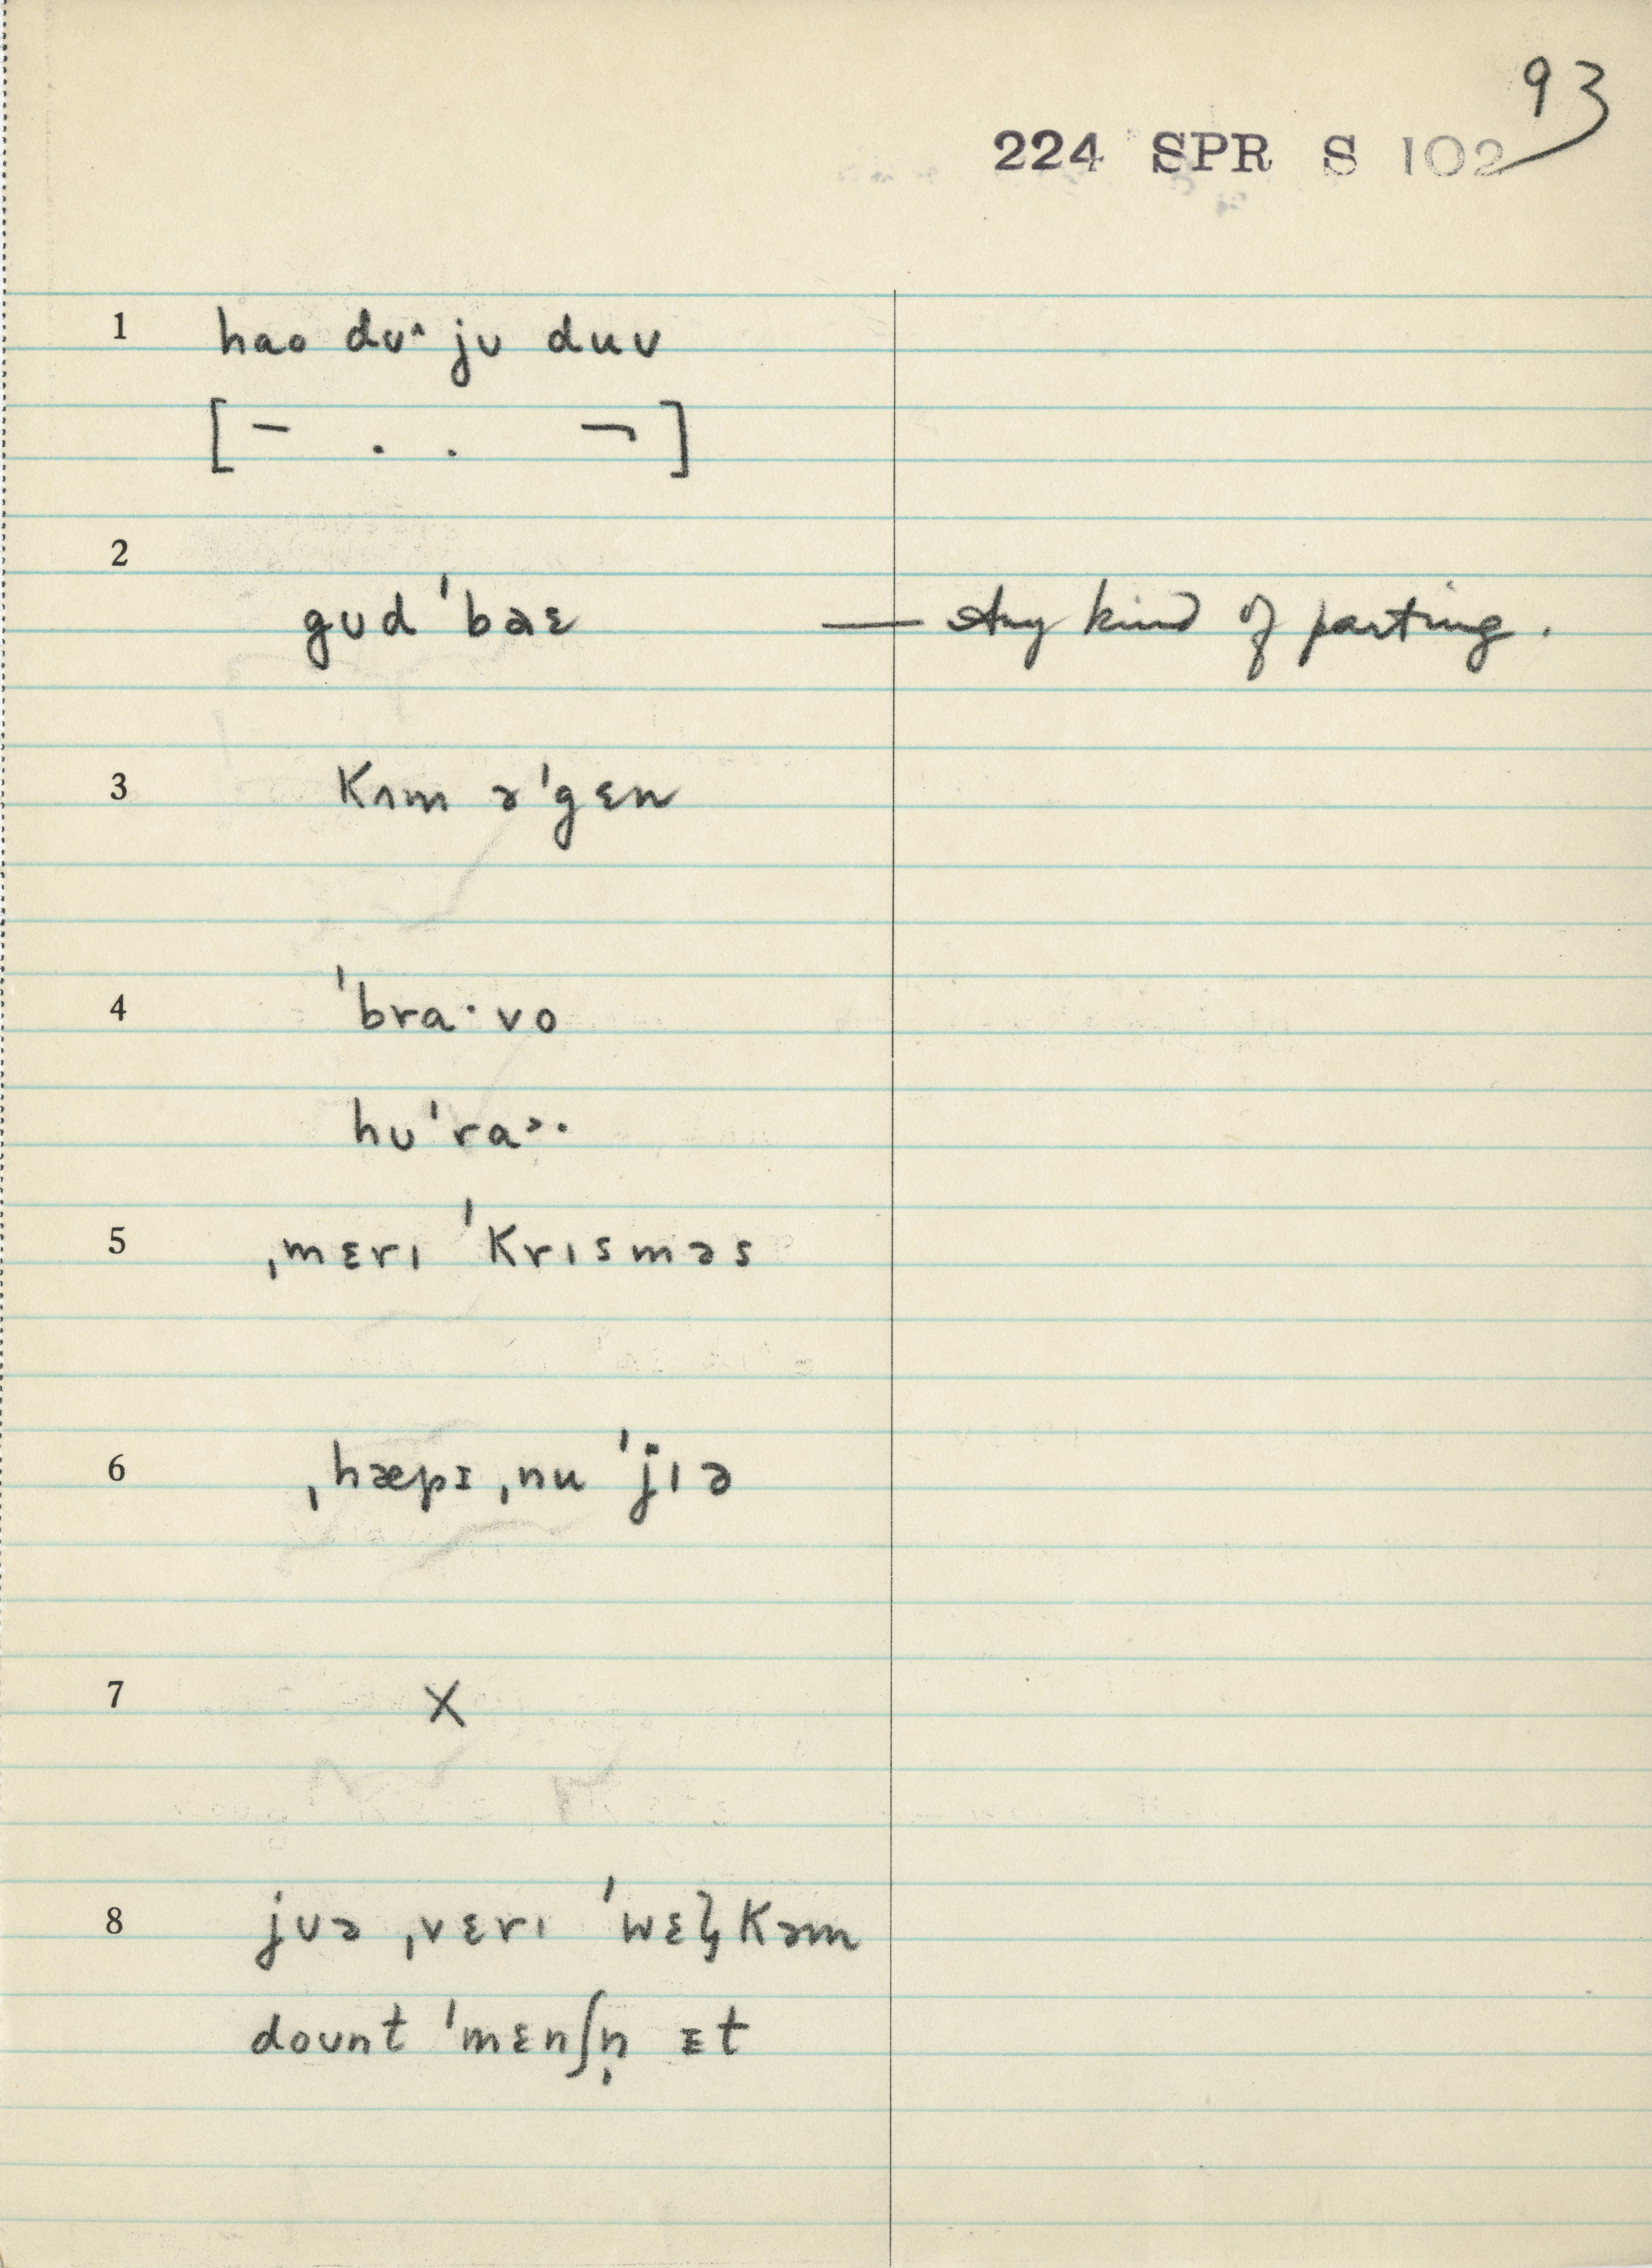 93
224 SPR S 102
1 hao dʊ^ jʊ duʊ
[ ¯ . . ¬ ]
2
gʊd ˈbaɛ — Any kind of parting.
3 Kʌm əˈgɛn
4 ˈbra·vo
hʊˈra>·
5 ˌmɛrɪ ˈKrɪsməs
6 ˌhæpɪ ˌnu ˈjɪə
7 X
8 jʊə ˌvɛrɪ ˈwɛɫKəm
doʊnt ˈmɛnʃn̩ ɪt